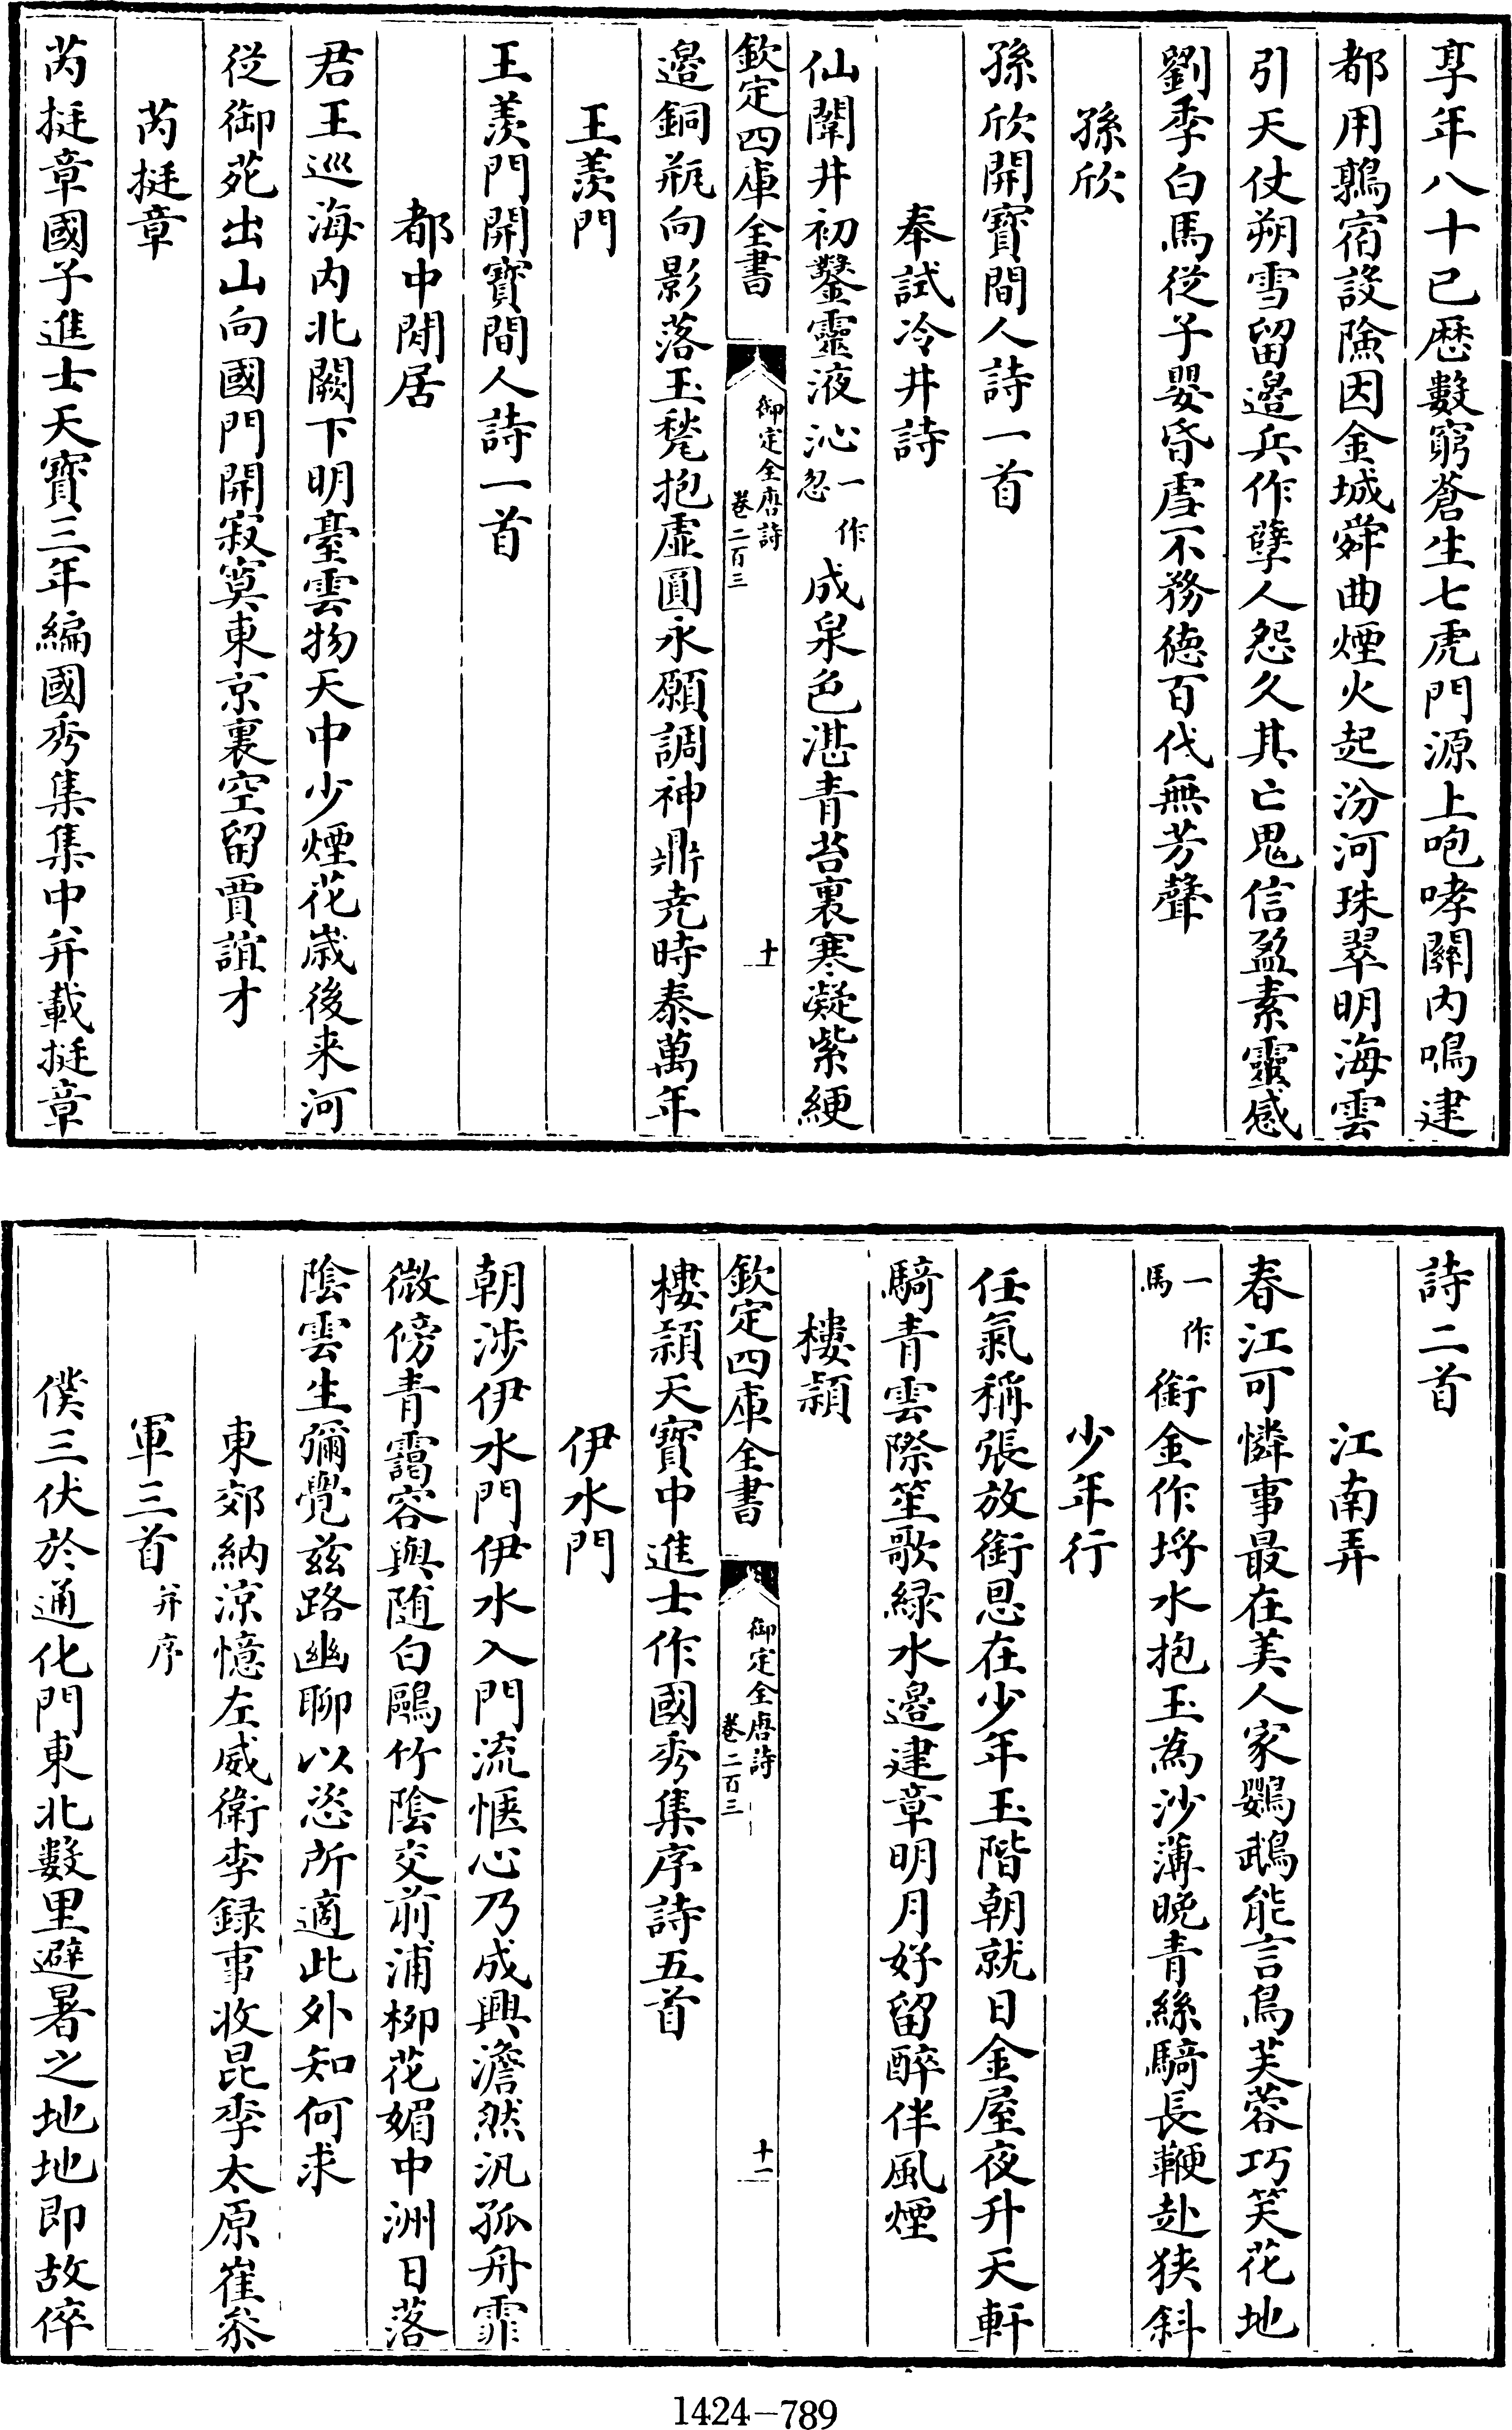 享年八十已歴數窮蒼生七虎門源上咆哮關內鳴建
都用鶉宿設險因金城舜曲煙火起汾河珠翠明海雲
引天仗朔雪留邉兵作孽人怨久其亡鬼信盈素靈感
劉季白馬從子嬰昏虐不務徳百代無芳聲
孫欣
孫欣開寳間人詩一首
奉試冷井詩
仙闈井初鑿靈液沁一作忽成泉色湛青苔裏寒凝紫綆
欽定四庫全書
御定全唐詩
卷二百三
十
邉銅瓶向影落玉甃抱虛圓永願調神鼎尭時泰萬年
王羨門
王羨門開寳間人詩一首
都中閒居
君王巡海內北闕下明臺雲物天中少煙花嵗後来河
從御苑出山向國門開寂寞東京裏空留賈誼才
芮挺章
芮挺章國子進士天寳三年編國秀集集中并載挺章
詩二首
江南弄
春江可憐事最在美人家鸚鵡能言鳥芙蓉巧笑花地
一作馬銜金作埓水抱玉為沙薄晚青絲騎長鞭赴狹斜
少年行
任氣稱張放銜恩在少年玉階朝就日金屋夜升天軒
騎青雲際笙歌緑水邉建章明月好留醉伴風煙
樓頴
欽定四庫全書
御定全唐詩
卷二百三
十一
樓頴天寳中進士作國秀集序詩五首
伊水門
朝渉伊水門伊水入門流愜心乃成興澹然汎孤舟霏
微傍青靄容與随白鷗竹陰交前浦栁花媚中洲日落
陰雲生彌覺兹路幽聊以恣所適此外知何求
東郊納涼憶左威衛李録事收昆季太原崔叅
軍三首并序
僕三伏於通化門東北數里避暑之地地即故倅
1424—789